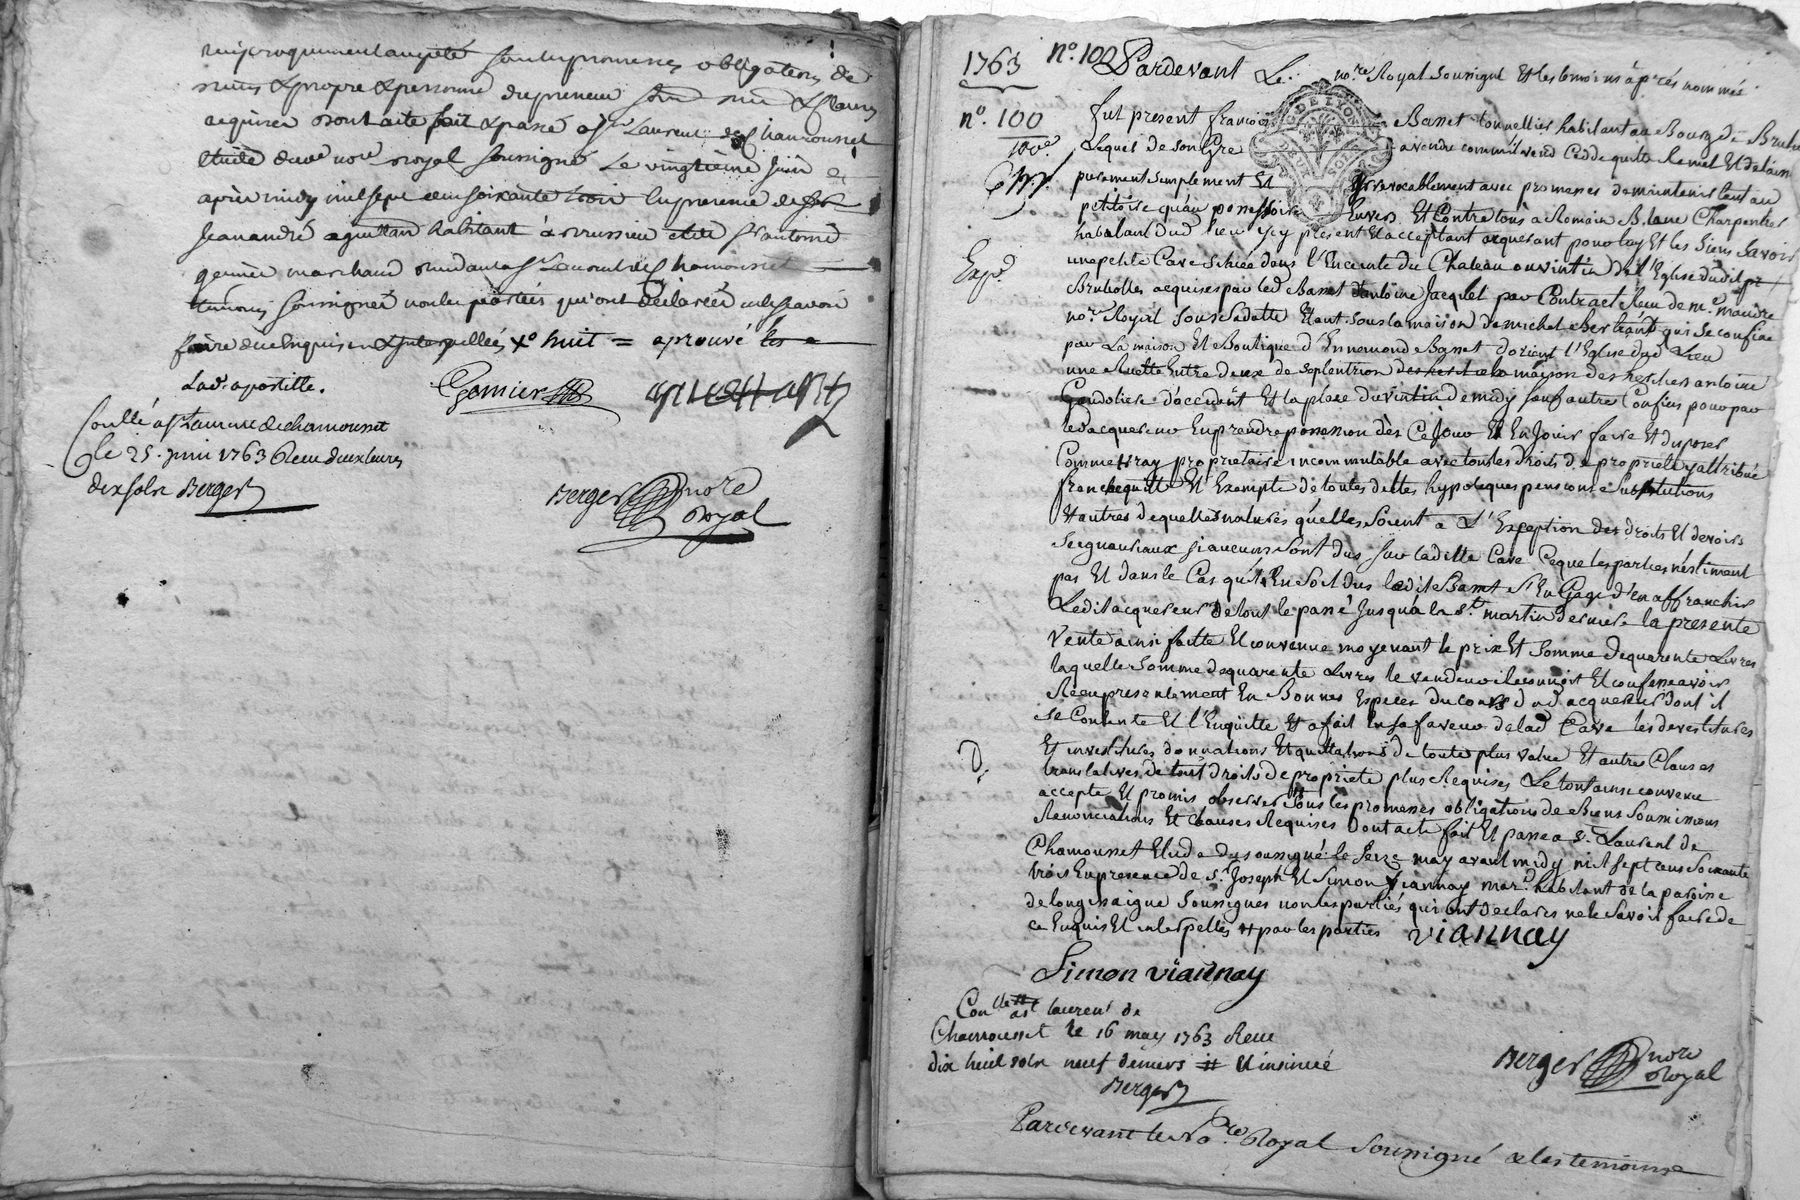 reciproquement accepté sous les promesses obligations de
acquises dont acte fait & passé a St Laurent de Chamousset
étude dud. nore royal soussigné le vingtieme juin
aprés midy mil sept cens soixante trois en presence de
Jean andré aguittand habitant à brussieu et de Sr antoine
marchand St Laurent de Chamousset
temoins soussignés non les parties qui ont déclarées ne le scavoir
faire de ce enquis et interpellées Xo huit = aprouvé
Lad. apostille.
Garnier
Conllé a St Laurent de chamousset
le 25. juin 1763 Receu deux livres
dix sols Berger
Berger nore
Royal
1763 n°. 102 Pardevant Le nore Royal Soussigné Et les temoins après nommés
n°. 100 fut present francois Basset tonnellier habitant au Bourg de Brulli
Lequel de son Gré a vendu comme il vend Cedde quitte Remet Et delaisse
purement simplement Et Irrevocablement avec promesses de maintenir tant au
petitoire qu'au possessoire Envers Et Contre tous a Romain Blanc Charpentier
habitant dud lieu icy présent Et acceptant acquerant pour luy Et les Siens Savoir
Expd. une petite Cave Scituée dans l'Enceinte du Chateau ou vintin de l'Eglise dudit
Brullolles acquises par led Basset d'antoine Jacquet par Contract Receu de me. maudre
nore Royal sous sa datte Etant sous la maison de michel qui se confine
par La maison Et Boutique d'Ennemond Basset d'orient l'Eglise dud Lieu
une Ruette Entre deux de septentrion maison des hoirs antoine
d'occident Et la place du vintin de midy sauf autres Confins pour par
led acquereur En prendre possession dès Ce jour Et En Jouir faire Et disposer
Comme vray proprietaire incommutable avec tous les droits de proprieté y attribué
franche quitte Et Exempte de toutes dettes hypoteques pensions Substitutions
Et autres de quelles natures qu'elles Soient a L'Exception des droits Et devoirs
Seigneuriaux si aucuns Sont dus sur laditte Cave Ce que les parties n'estiment
pas Et dans le Cas qu'il En Soit dus ledit Basset S'En Gage d'en affranchir
Ledit acquereur de tout le passé Jusqu'a la St. martin derniere la presente
Vente ainsi faitte Et convenue moyenant le prix Et Somme de quarente Livres
laquelle Somme de quarente Livres le vendeur a Reconnoit Et confesse avoir
Receu presentement En Bonnes Especes du cours dud acquereur dont il
Se Contente Et l'Enquitte Et a fait En sa faveur de lad Cave les devestitures
Et investitures donnations Et quittations de toute plus value Et autres Clauses
translatives de tout droits de proprieté plus Requises Le tout ainsi convenu
accepté Et promis observer Sous les promesses obligations de Biens Soumissions
Renonciations Et Clauses Requises Dont acte fait Et passé a St. Laurent de
Chamousset Etude du soussigné le seize may avant midy mil sept cens Soixante
trois En presence de Sr. Joseph Et Simon Viannay mard. habitant de la paroisse
de longessaigne Soussignes non les parties qui ont declares ne le Savoir faire de
ce Enquis Et interpellés par les parties viannay
Simon viannay
Conllé a St laurent de
Chamousset le 16 may 1763 Receu
dix huit sols neuf deniers Et insinué
Berger
Berger nore
Royal
Pardevant le Nore. Royal Soussigné & les temoins